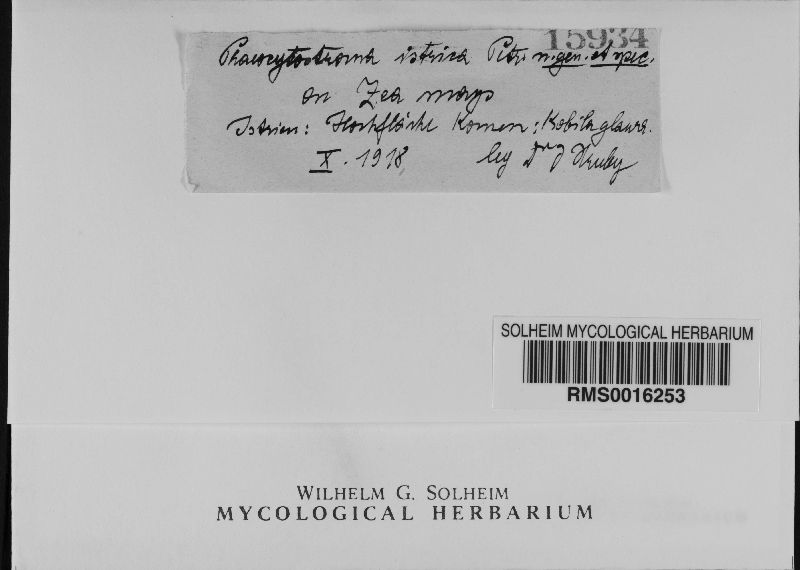 15934
Phaeocytostroma istrica Petr. n.gen. et spec.
on Zea mays
Istrien: Hochfläche Komen; Kobilaglawa.
X. 1918 leg Dr J Hruby
SOLHEIM MYCOLOGICAL HERBARIUM
RMS0016253
WILHELM G. SOLHEIM
MYCOLOGICAL HERBARIUM